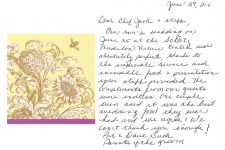 June 29, 20
Dear Chef Josh & staff,
Our son's wedding on
June 20 at the Schlitz
Audubon Nature Center was
absolutely perfect, thanks to
the impeccable service and
incredible food & presentation
your staff provided. The
compliments from our guests
were endless. One couple
even said it was the best
wedding food they ever
had and we agree! We
can't thank you enough!
Pat & Dave
Parents of the groom